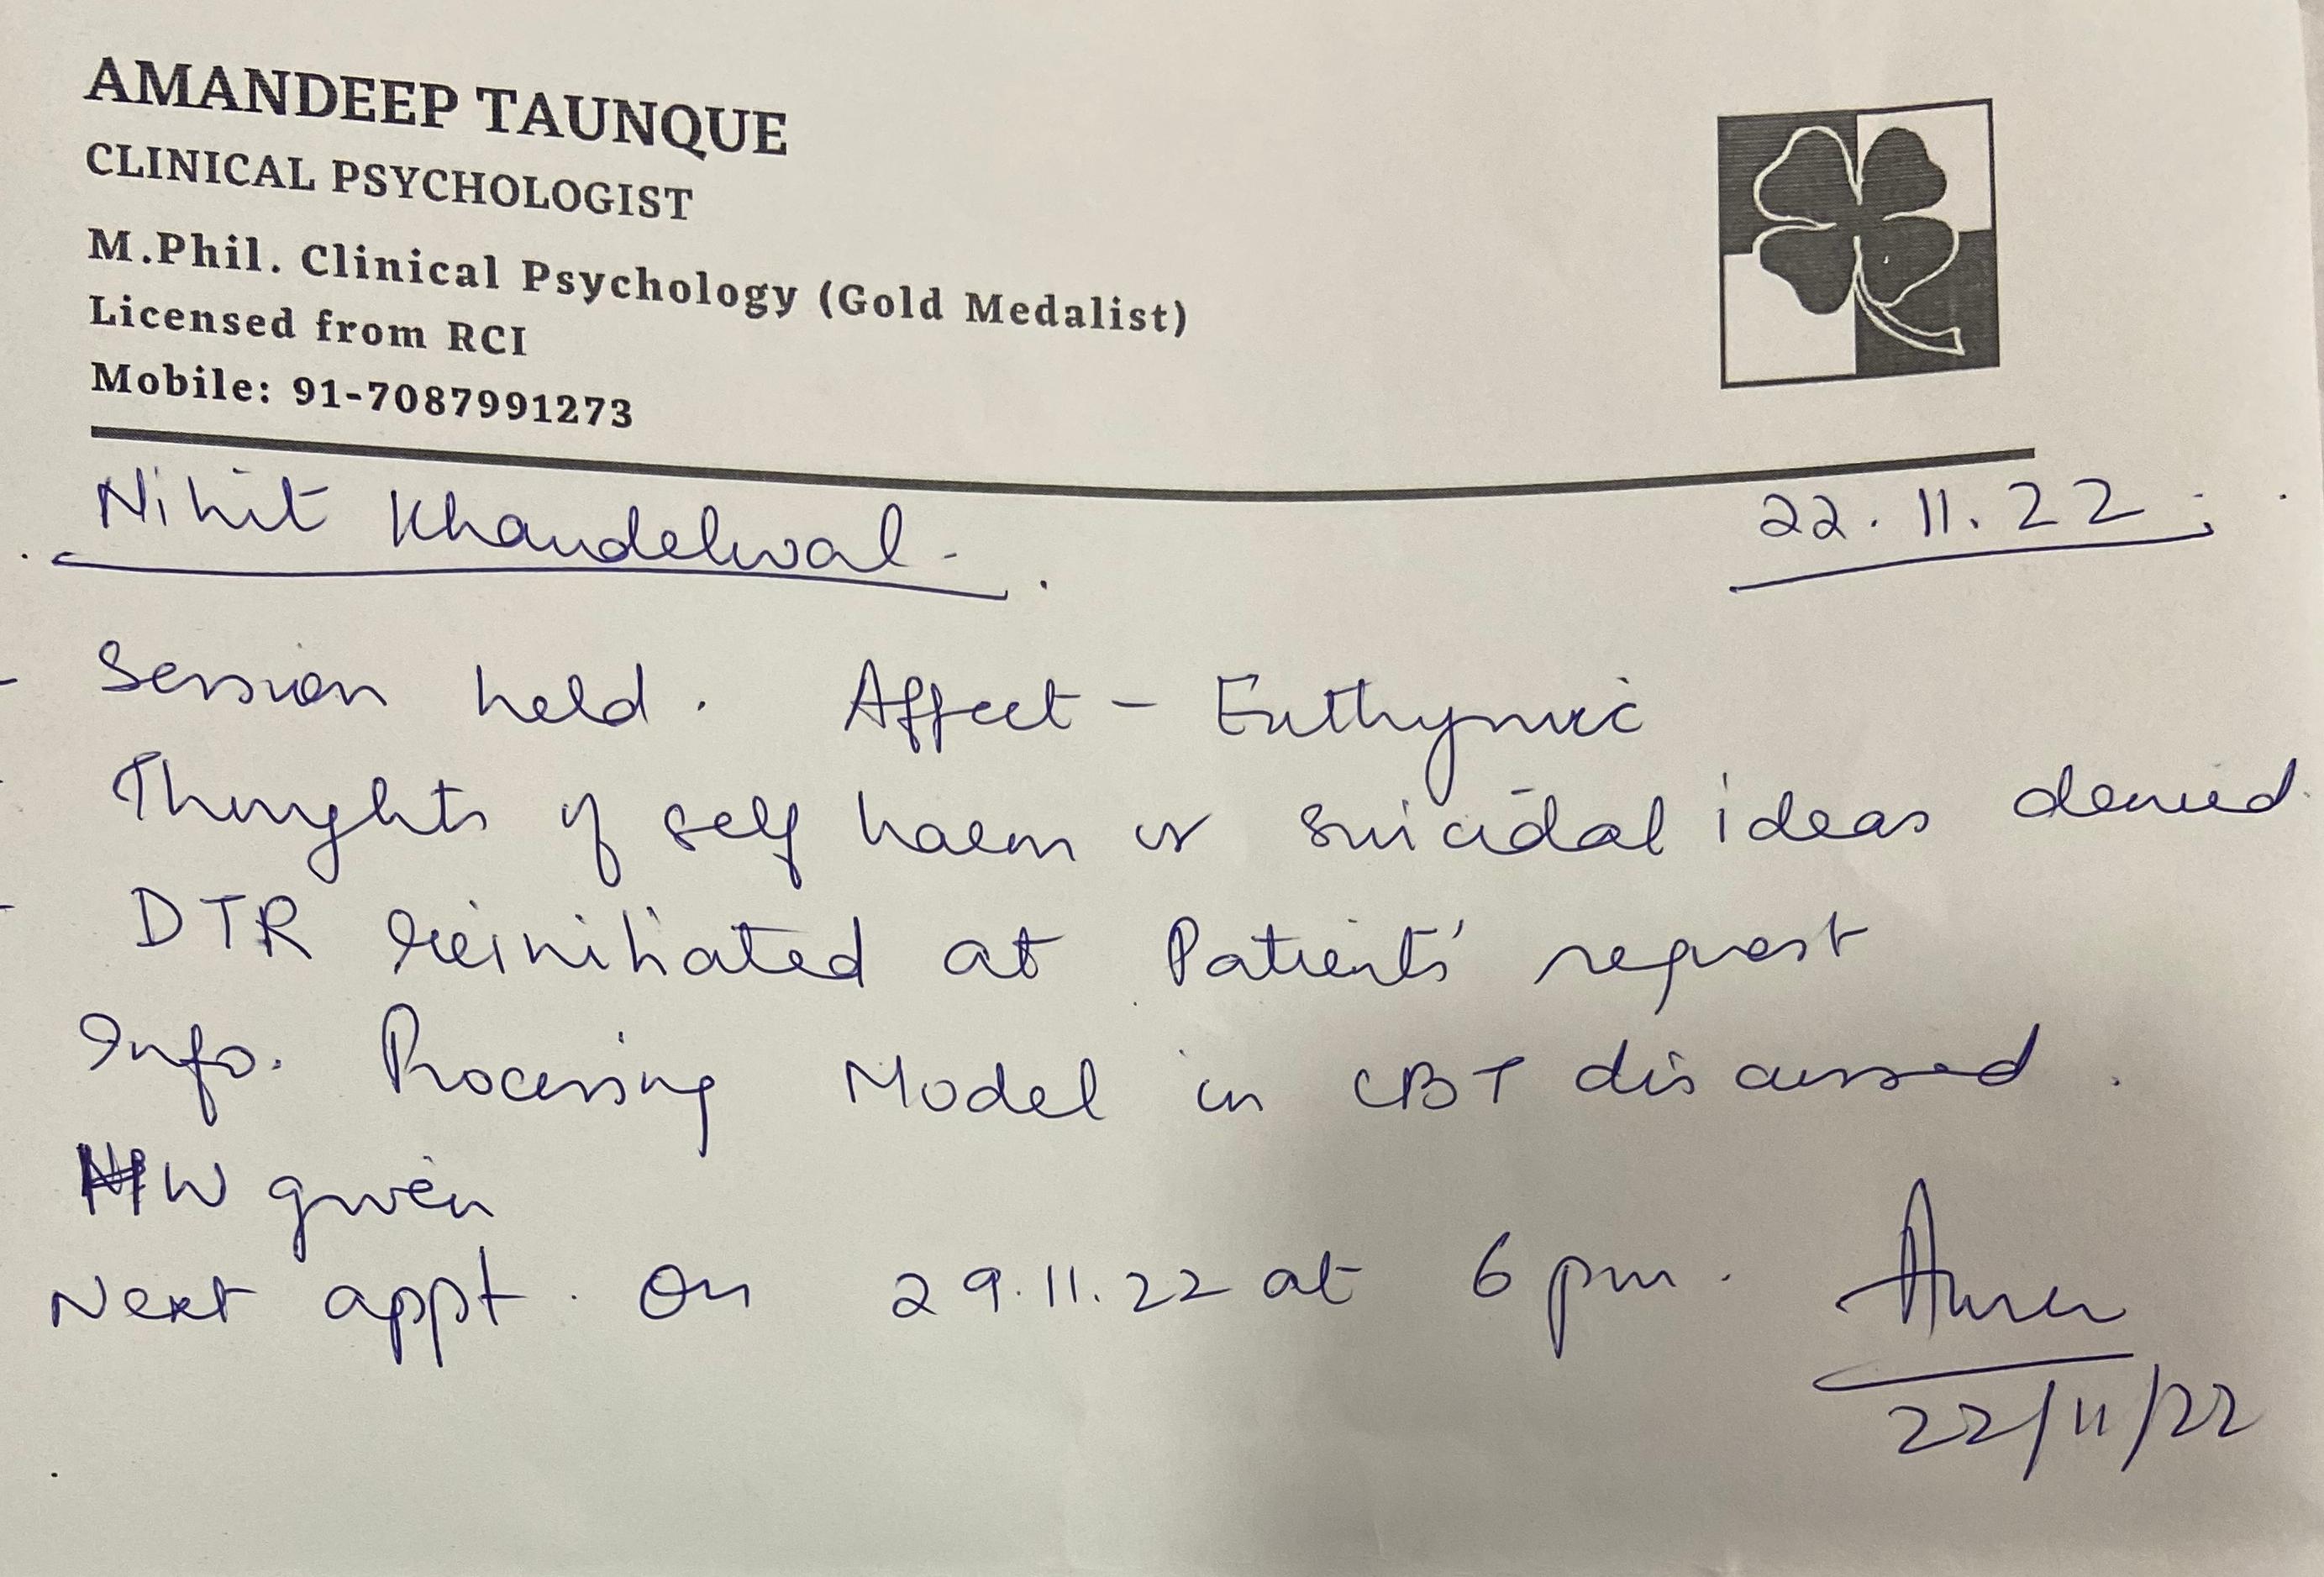 AMANDEEP TAUNQUE
CLINICAL PSYCHOLOGIST
M.Phil. Clinical Psychology (Gold Medalist)
Licensed from RCI
Mobile: 91-7087991273
Nihit Khandelwal.
22.11.22
- Session held. Affect - Euthymic
- Thoughts of self harm or suicidal ideas denied.
- DTR reinitiated at Patients' request
Info. Processing Model in CBT discussed.
HW given
Next appt. on 29.11.22 at 6 pm.
22/11/22